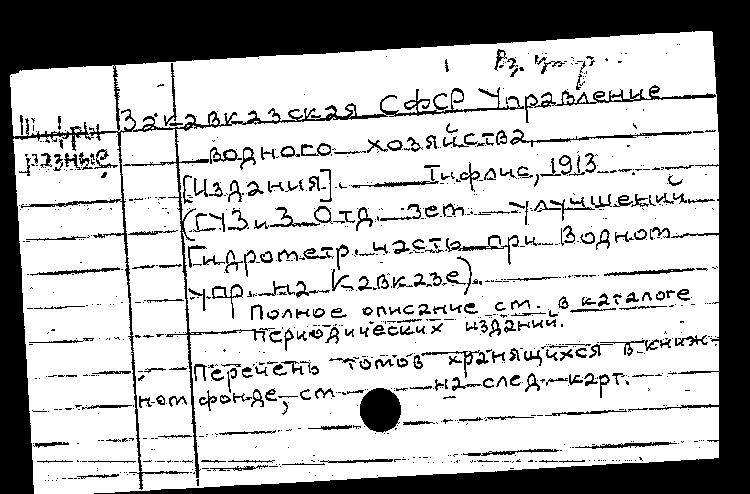 Вз. утр.
Шифры разные
Закавказская СФСР Управление
водного хозяйства.
[Издания]. Тифлис, 1913
(ГУЗиЗ Отд. Зем. улучшений
Гидрометр. часть при Водном
упр. на Кавказе).
Полное описание см. в каталоге
периодических изданий.
Перечень томов хранящихся в книж-
ном фонде, см на след. карт.